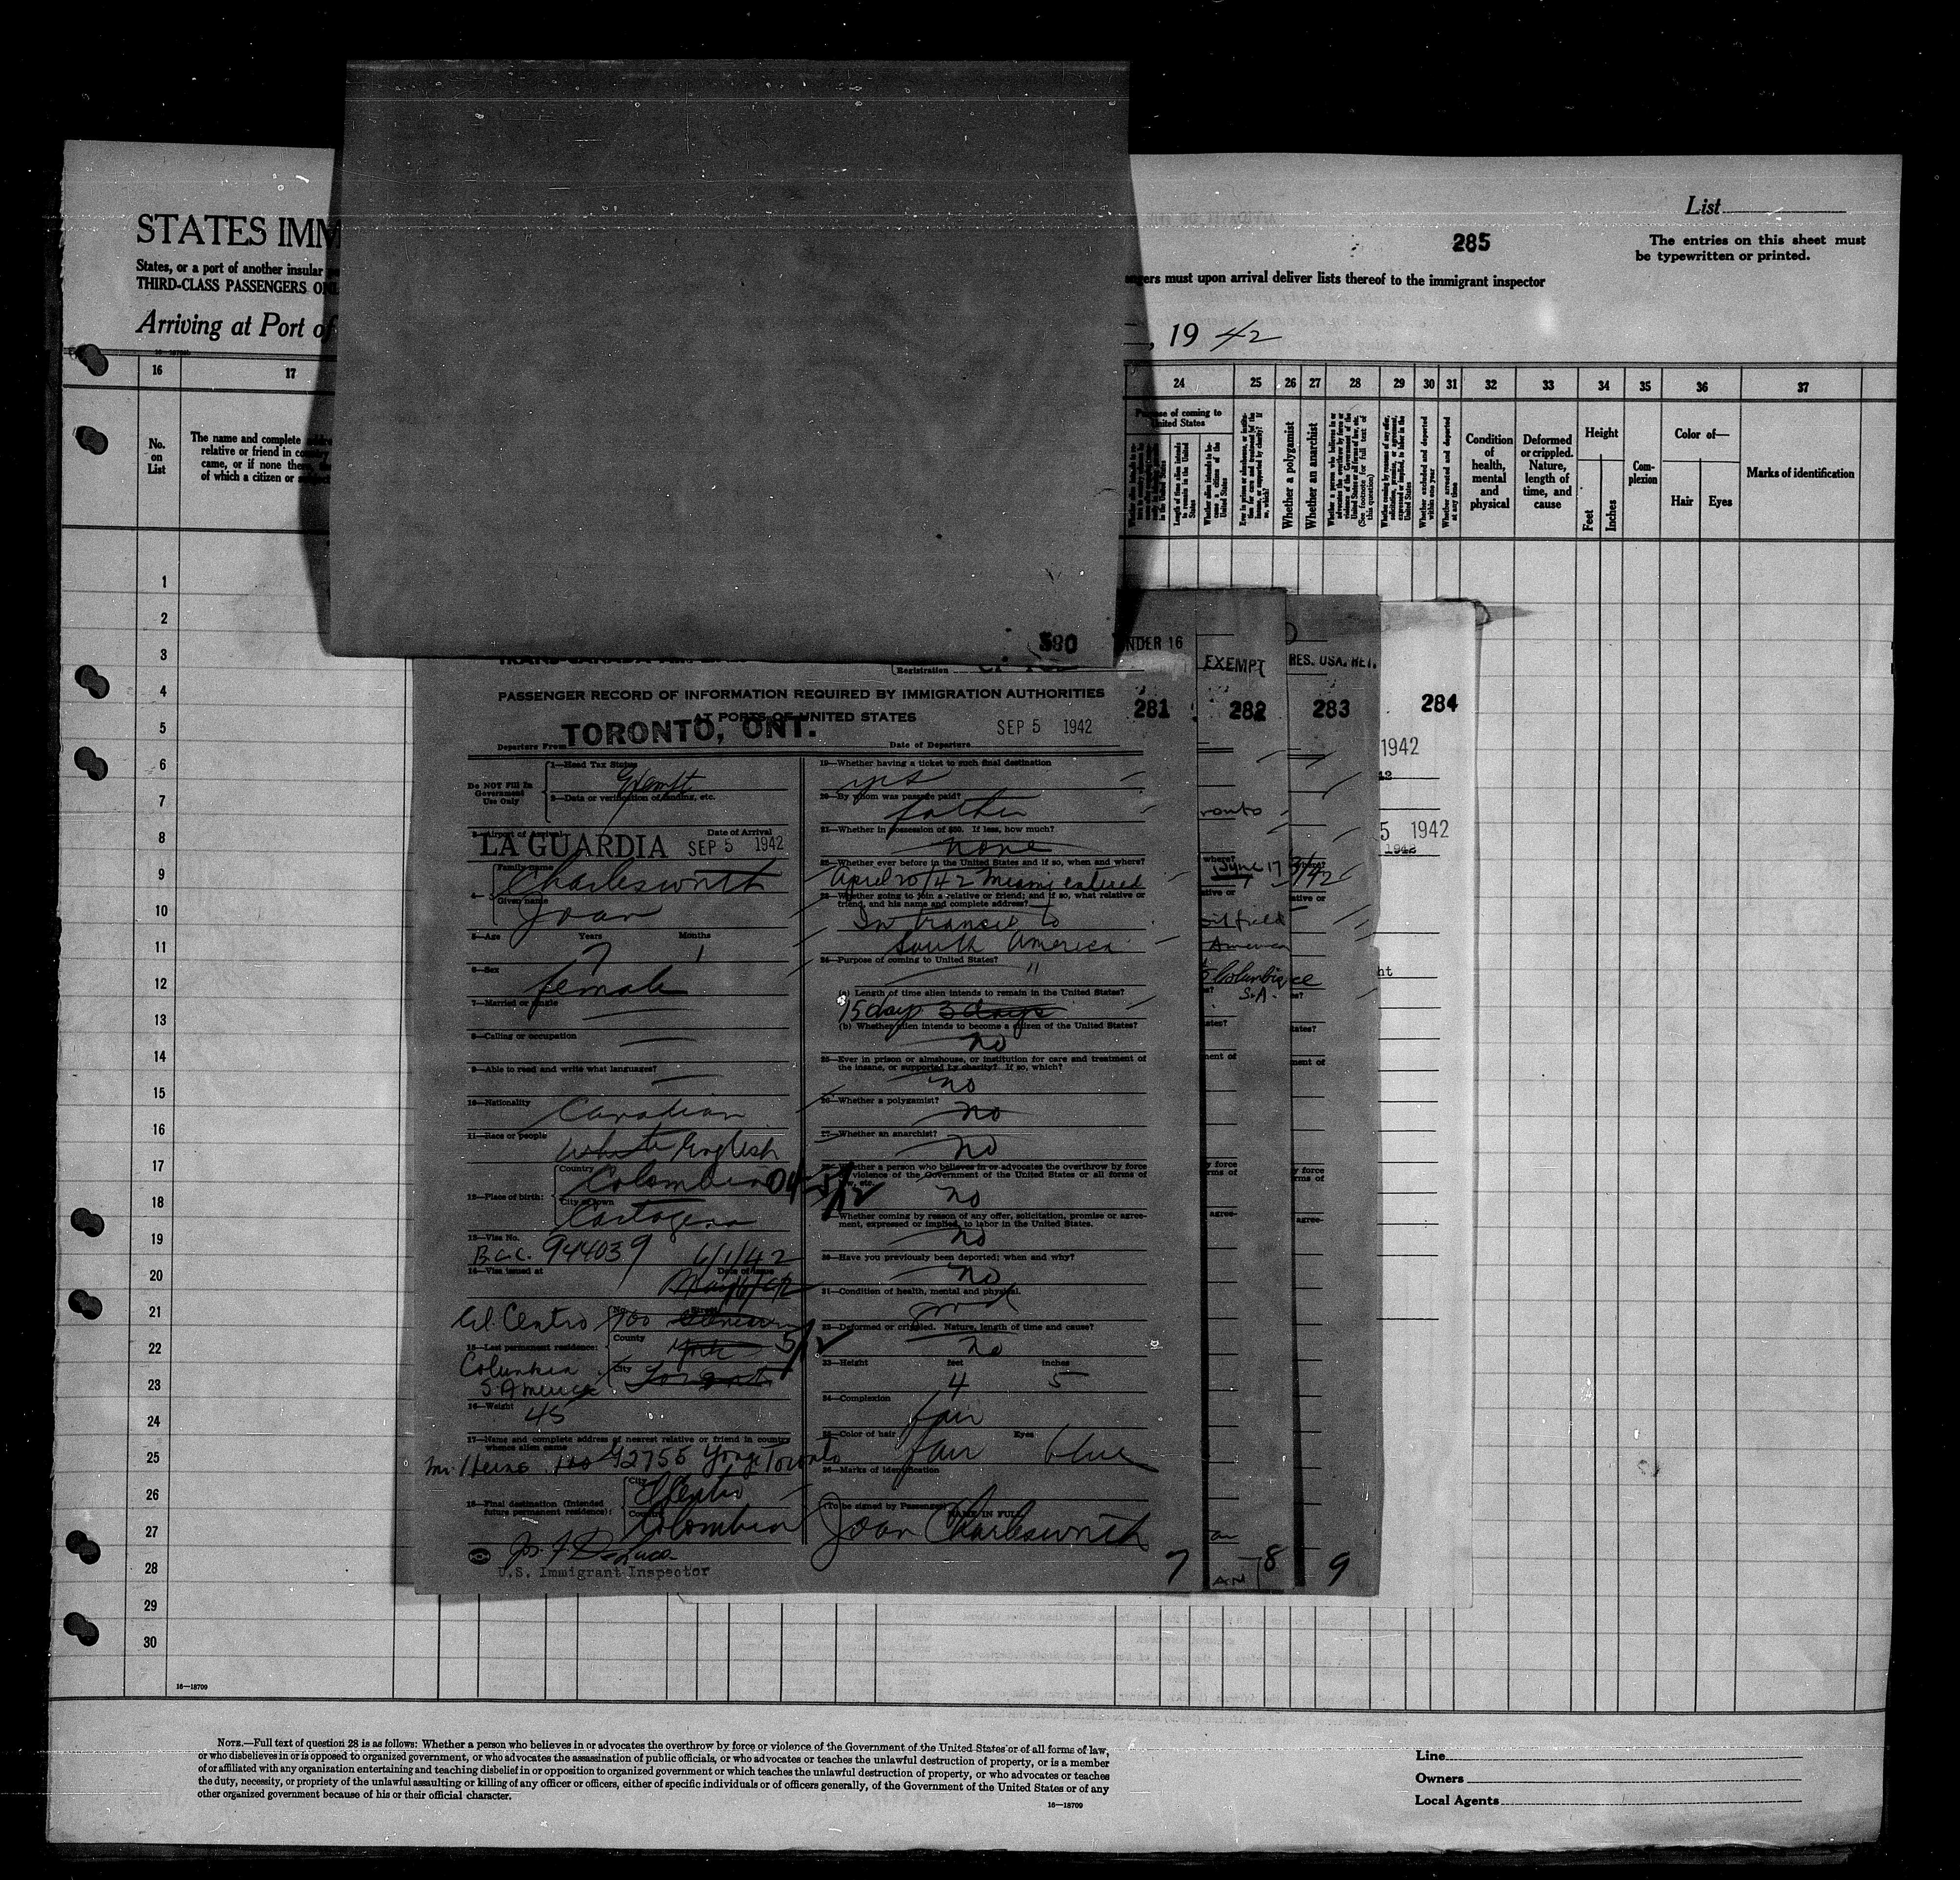 List
STATES IMM
285
The entries on this sheet must
be typewritten or printed.
States, or a port of another insular
THIRD-CLASS PASSENGERS ON
engers must upon arrival deliver lists thereof to the immigrant inspector
Arriving at Port of
, 19 42
16 17 24 25 26 27 28 29 30 31 32 33 34 35 36 37
No.
on
List
The name and complete
relative or friend in
came, or if none there,
of which a citizen or
Purpose of coming to
United States
Whether a polygamist
Whether an anarchist
Condition
of
health,
mental
and
physical
Deformed
or crippled.
Nature,
length of
time, and
cause
Height
Feet
Inches
Com-
plexion
Color of—
Hair
Eyes
Marks of identification
1
2
3
4
5
6
7
8
9
10
11
12
13
14
15
16
17
18
19
20
21
22
23
24
25
26
27
28
29
30
16—18709
380
Registration
UNDER 16
EXEMPT
RES. USA. RET.
PASSENGER RECORD OF INFORMATION REQUIRED BY IMMIGRATION AUTHORITIES
AT PORTS OF UNITED STATES
281
282
283
284
Departure From TORONTO, ONT.
Date of Departure SEP 5 1942
Do NOT Fill In
Government
Use Only
1—Head Tax Status
Exempt
2—Data or verification of landing, etc.
3—Airport of Arrival
LA GUARDIA
Date of Arrival
SEP 5 1942
4—
Family name
Charlesworth
Given name
Joan
5—Age Years Months
7 1
6—Sex
female
7—Married or single
8—Calling or occupation
9—Able to read and write what languages?
10—Nationality
Canadian
11—Race or people
White English
12—Place of birth:
Country
Colombia
City or town
Cartagena
13—Visa No.
B.C.C. 944039 6/1/42
14—Visa issued at
Date of Issue
El Centro
No. Street
100
15—Last permanent residence:
County
York
5/12
City
Toronto
Columbia
S America
16—Weight
45
17—Name and complete address of nearest relative or friend in country
whence alien came
2755 Yonge Toronto
18—Final destination (Intended
future permanent residence):
City
El Centro
Country
Colombia
U.S. Immigrant Inspector
19—Whether having a ticket to such final destination
yes
20—By whom was passage paid?
father
21—Whether in possession of $50. If less, how much?
none
22—Whether ever before in the United States and if so, when and where?
April 20/42 Miami entered
23—Whether going to join a relative or friend; and if so, what relative or
friend, and his name and complete address?
In transit to
South America
24—Purpose of coming to United States?
"
(a) Length of time alien intends to remain in the United States?
15 days 3 days
(b) Whether alien intends to become a citizen of the United States?
no
25—Ever in prison or almshouse, or institution for care and treatment of
the insane, or supported by charity? If so, which?
no
26—Whether a polygamist?
no
27—Whether an anarchist?
no
Whether a person who believes in or advocates the overthrow by force
violence of the Government of the United States or all forms of
law, etc.
no
Whether coming by reason of any offer, solicitation, promise or agree-
ment, expressed or implied, to labor in the United States.
no
30—Have you previously been deported; when and why?
no
31—Condition of health, mental and physical.
good
32—Deformed or crippled. Nature, length of time and cause?
no
33—Height feet inches
4 5
34—Complexion
fair
35—Color of hair Eyes
fair blue
36—Marks of identification
(To be signed by Passenger) NAME IN FULL
Joan Charlesworth
7
8
9
1942
5 1942
1942
ronto
where?
June 17
3/42
ative or
America
Columbia
S.A.
ht
ates?
ment of
y force
rms of
agree-
NOTE.—Full text of question 28 is as follows: Whether a person who believes in or advocates the overthrow by force or violence of the Government of the United States or of all forms of law,
or who disbelieves in or is opposed to organized government, or who advocates the assassination of public officials, or who advocates or teaches the unlawful destruction of property, or is a member
of or affiliated with any organization entertaining and teaching disbelief in or opposition to organized government or which teaches the unlawful destruction of property, or who advocates or teaches
the duty, necessity, or propriety of the unlawful assaulting or killing of any officer or officers, either of specific individuals or of officers generally, of the Government of the United States or of any
other organized government because of his or their official character.
16—18709
Line
Owners
Local Agents